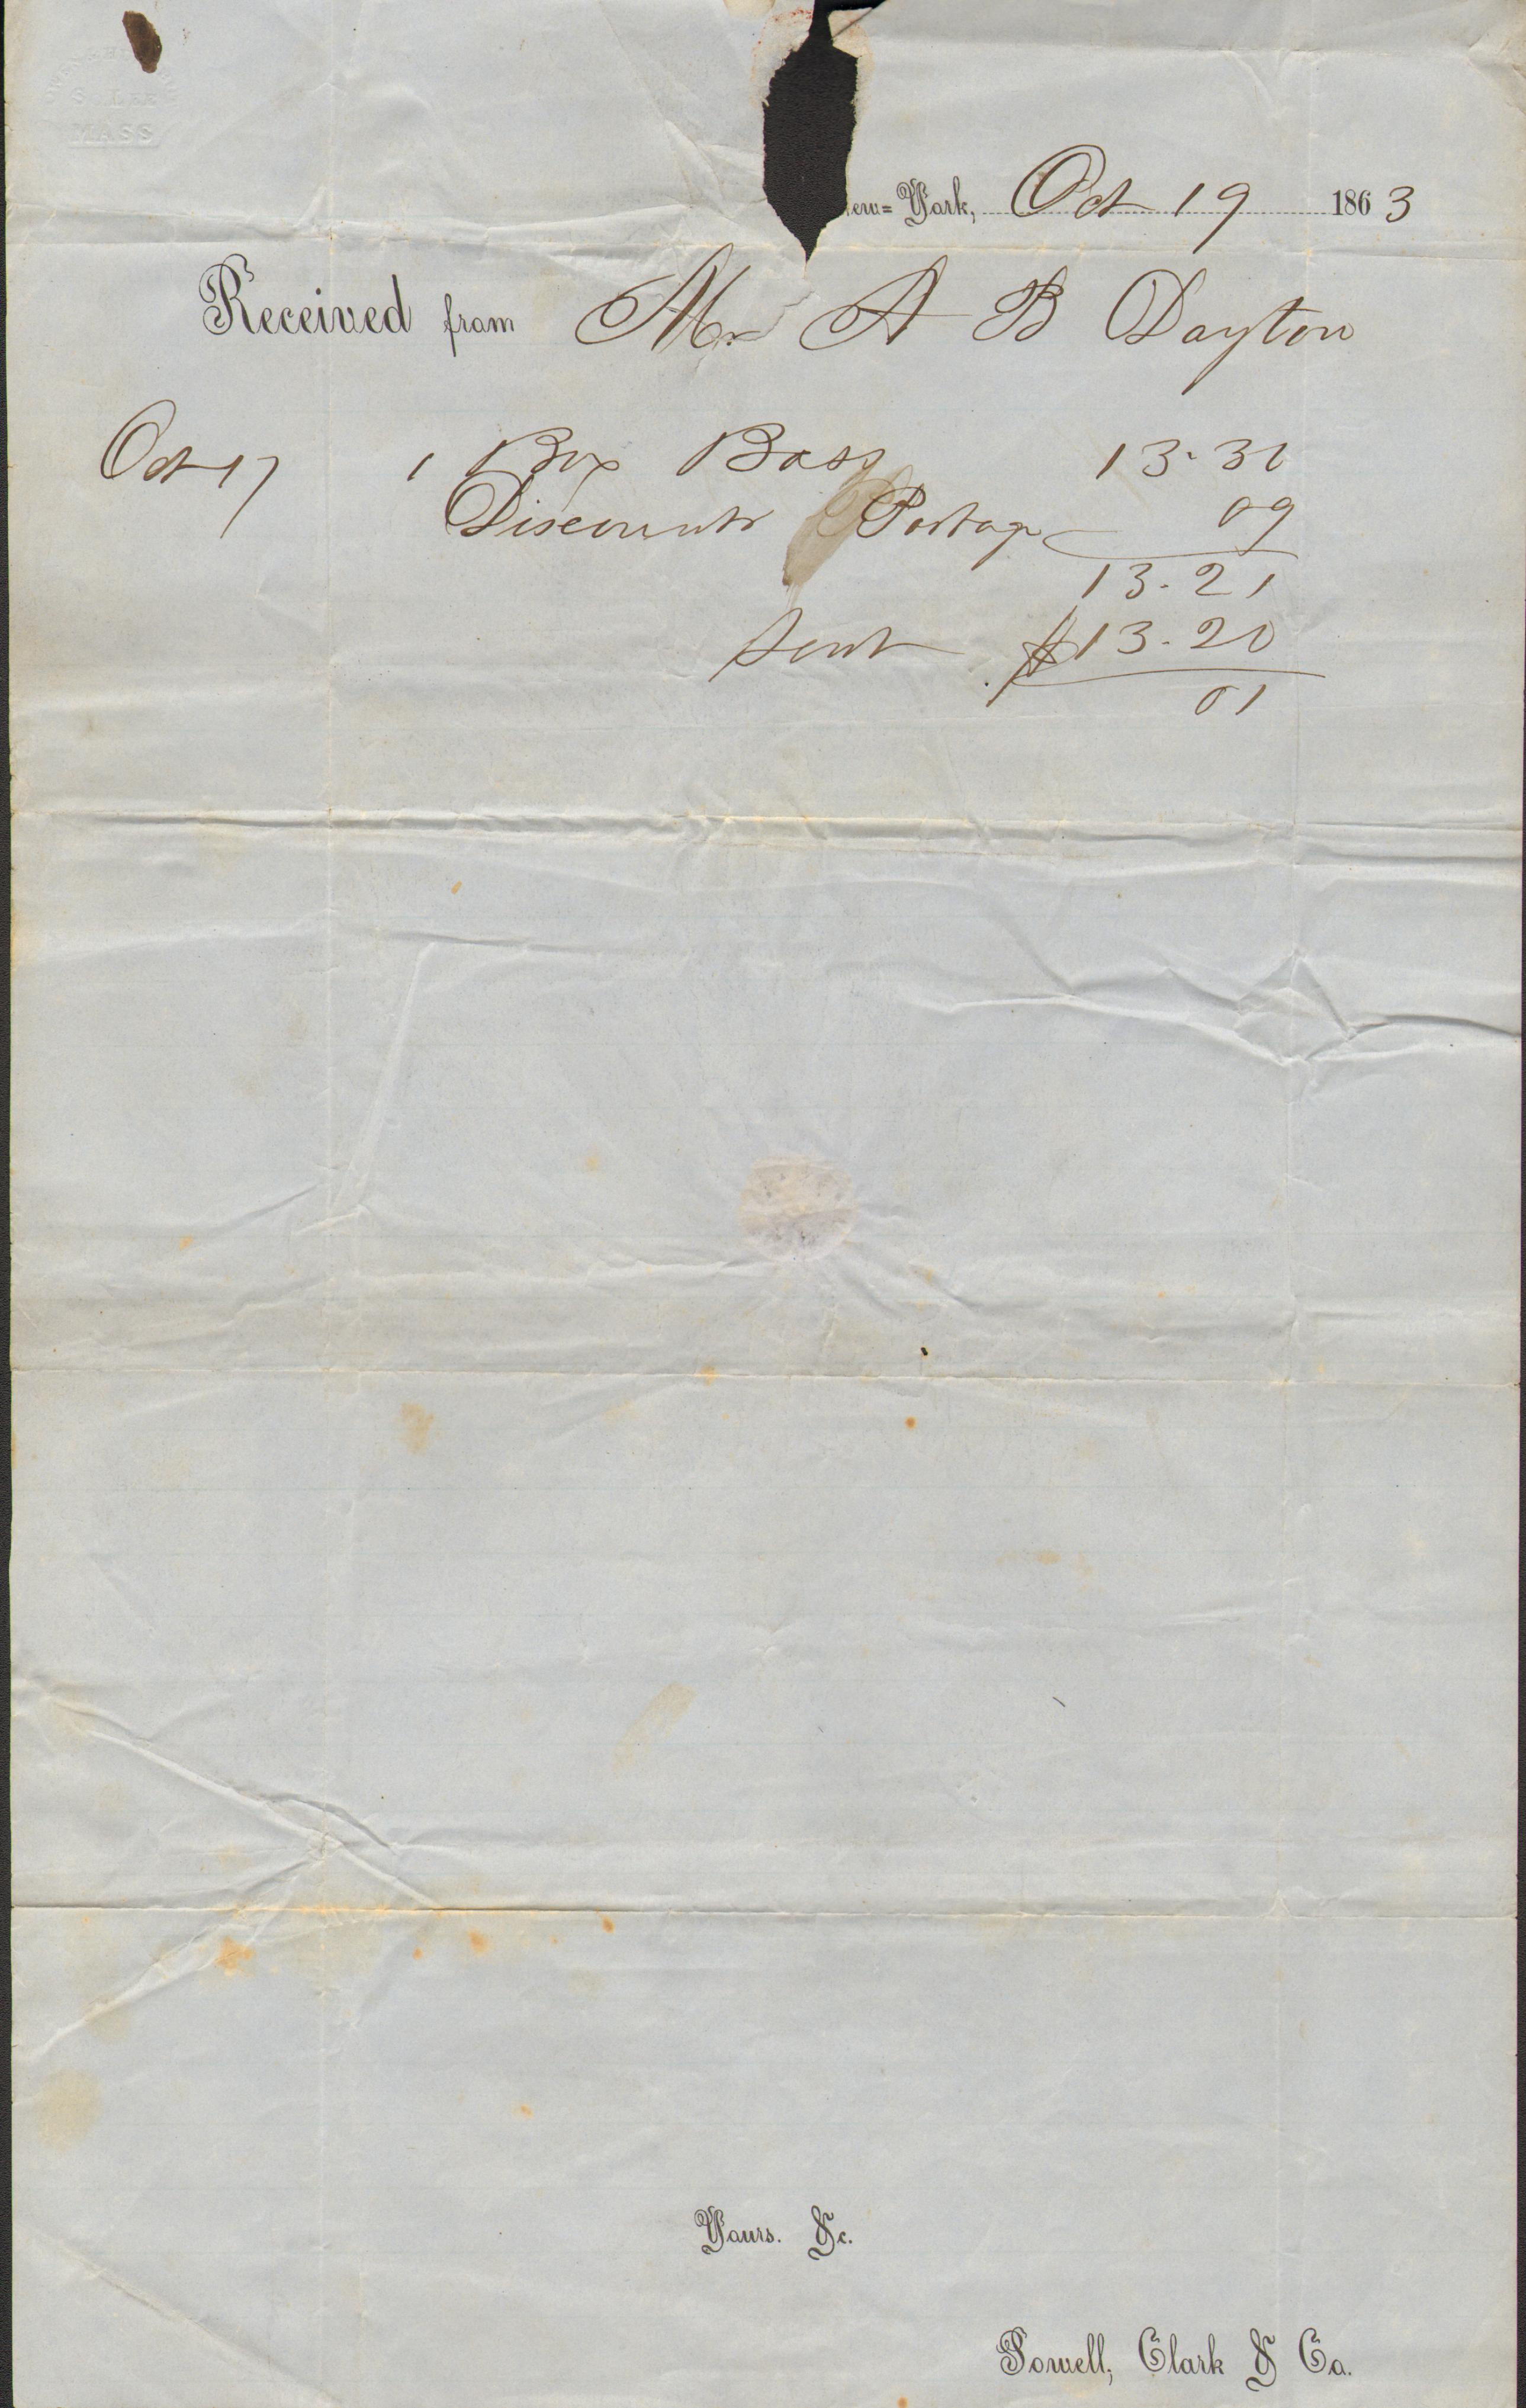 S. Lee
MASS
ew=York, Oct 19 1863
Received from Mr A B Dayton
Oct 17 1 Box Bass 13.30
Discount Postage 09
13.21
Sent $13.20
01
Yours. &c.
Powell, Clark & Co.